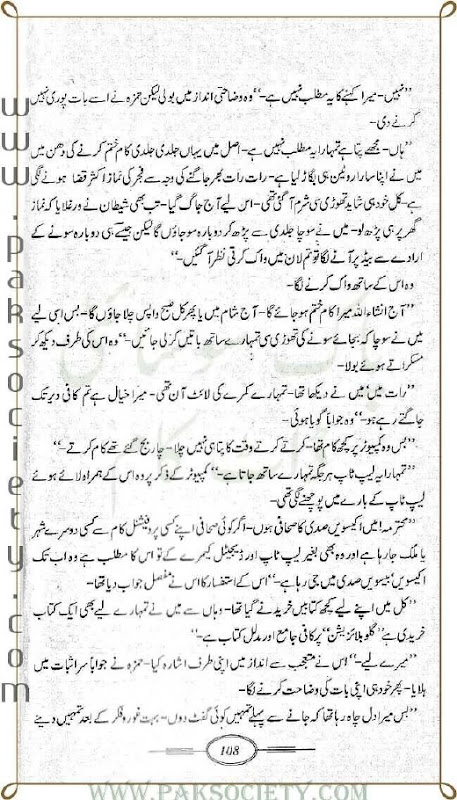 ”نہیں- میرا کہنے کا یہ مطلب نہیں ہے-“ وہ وضاحتی انداز میں بولی لیکن حمزہ نے اسے بات پوری نہیں
کرنے دی-
”ہاں- مجھے پتا ہے تمہارا یہ مطلب نہیں ہے- اصل میں یہاں جلدی جلدی کام ختم کرنے کی دھن میں
میں نے اپنا سارا روٹین ہی بگاڑ لیا ہے- رات رات بھر جاگنے کی وجہ سے فجر کی نماز اکثر قضا ہونے لگی
ہے- کل خود ہی شاید تھوڑی سی شرم آ گئی تھی- اس لیے آج جاگ گیا- تب بھی شیطان نے ورغلایا کہ نماز
گھر پر ہی پڑھ لو- میں نے سوچا جلدی سے پڑھ کر دوبارہ سو جاؤں گا لیکن جیسے ہی دوبارہ سونے کے
ارادے سے بیڈ پر آنے لگا تو تم لان میں واک کرتی نظر آ گئیں-“
وہ اس کے ساتھ واک کرنے لگا-
”آج انشاء اللہ میرا کام ختم ہو جائے گا- آج شام میں یا پھر کل صبح واپس چلا جاؤں گا- بس اسی لیے
میں نے سوچا کہ بجائے سونے کی تھوڑی سی تمہارے ساتھ باتیں کر لی جائیں-“ وہ اس کی طرف دیکھ کر
مسکراتے ہوئے بولا-
”رات میں میں نے دیکھا تھا- تمہارے کمرے کی لائٹ آن تھی- میرا خیال ہے تم کافی دیر تک
جاگتے رہے ہو-“ وہ جواباً گویا ہوئی-
”بس وہ کمپیوٹر پر کچھ کام تھا- کرتے کرتے وقت کا پتا ہی نہیں چلا- چار بج گئے تھے کام کرتے-“
”تمہارا یہ لیپ ٹاپ ہر جگہ تمہارے ساتھ جاتا ہے-“ کمپیوٹر کے ذکر پر وہ اس کے ہمراہ لائے ہوئے
لیپ ٹاپ کے بارے میں پوچھنے لگی تھی-
”محترمہ! میں اکیسویں صدی کا صحافی ہوں- اگر کوئی صحافی اپنے کسی پروفیشنل کام سے کسی دوسرے شہر
یا ملک جا رہا ہے اور وہ بھی بغیر لیپ ٹاپ اور ڈیجیٹل کیمرے کے تو اس کا مطلب ہے وہ اب تک
اکیسویں بیسویں صدی میں جی رہا ہے-“ اس کے استفسار کا اس نے مفصل جواب دیا تھا-
”کل میں اپنے لیے کچھ کتابیں خریدنے گیا تھا- وہاں سے میں نے تمہارے لیے بھی ایک کتاب
خریدی ہے ”گلوبلائزیشن“ پر کافی جامع اور مدلل کتاب ہے-“
”میرے لیے-“ اس نے متعجب سے انداز میں اپنی طرف اشارہ کیا- حمزہ نے جواباً سر اثبات میں
ہلایا- پھر خود ہی اپنی بات کی وضاحت کرنے لگا-
”بس میرا دل چاہ رہا تھا کہ جانے سے پہلے تمہیں کوئی گفٹ دوں- بہت غور و فکر کے بعد تمہیں دینے
108
www.paksociety.com
WWW.PAKSOCIETY.COM